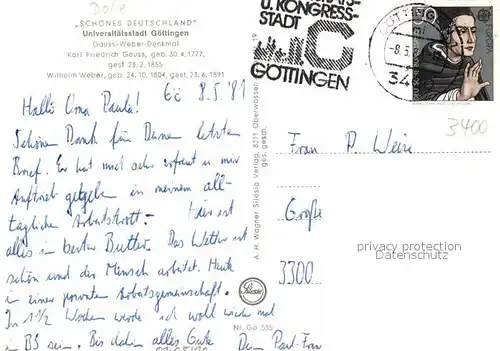 "SCHÖNES DEUTSCHLAND"
Universitätsstadt Göttingen
Gauss-Weber-Denkmal
Karl Friedrich Gauss, geb. 30.4.1777,
gest. 23.2.1855
Wilhelm Weber, geb. 24.10.1804, gest. 23.6.1891
Gö 8.5.'81
Hallo Oma Paula!
Schönen Dank für Deinen letzten
Brief. Er hat mich sehr erfreut u. mir
Auftrieb gegeben in meinem all-
täglichen Arbeitstrott. - Hier ist
alles in bester Butter. Das Wetter ist
schön und der Mensch arbeitet. Heute
in einer privaten Arbeitsgemeinschaft.
In 1½ Wochen werde ich wohl wieder mal
in BS sein. Bis dahin alles Gute
Dein Paul-Fran
A. H. Wagner Silesia Verlag, 8711 Oberwassen
ges. gesch.
Silesia
Nr. Gö 535
U. KONGRESS-
STADT
GÖTTINGEN
- 8.5
34
50
EUROPA
3400
Frau P. Weise
Große
3300
privacy protection
Datenschutz